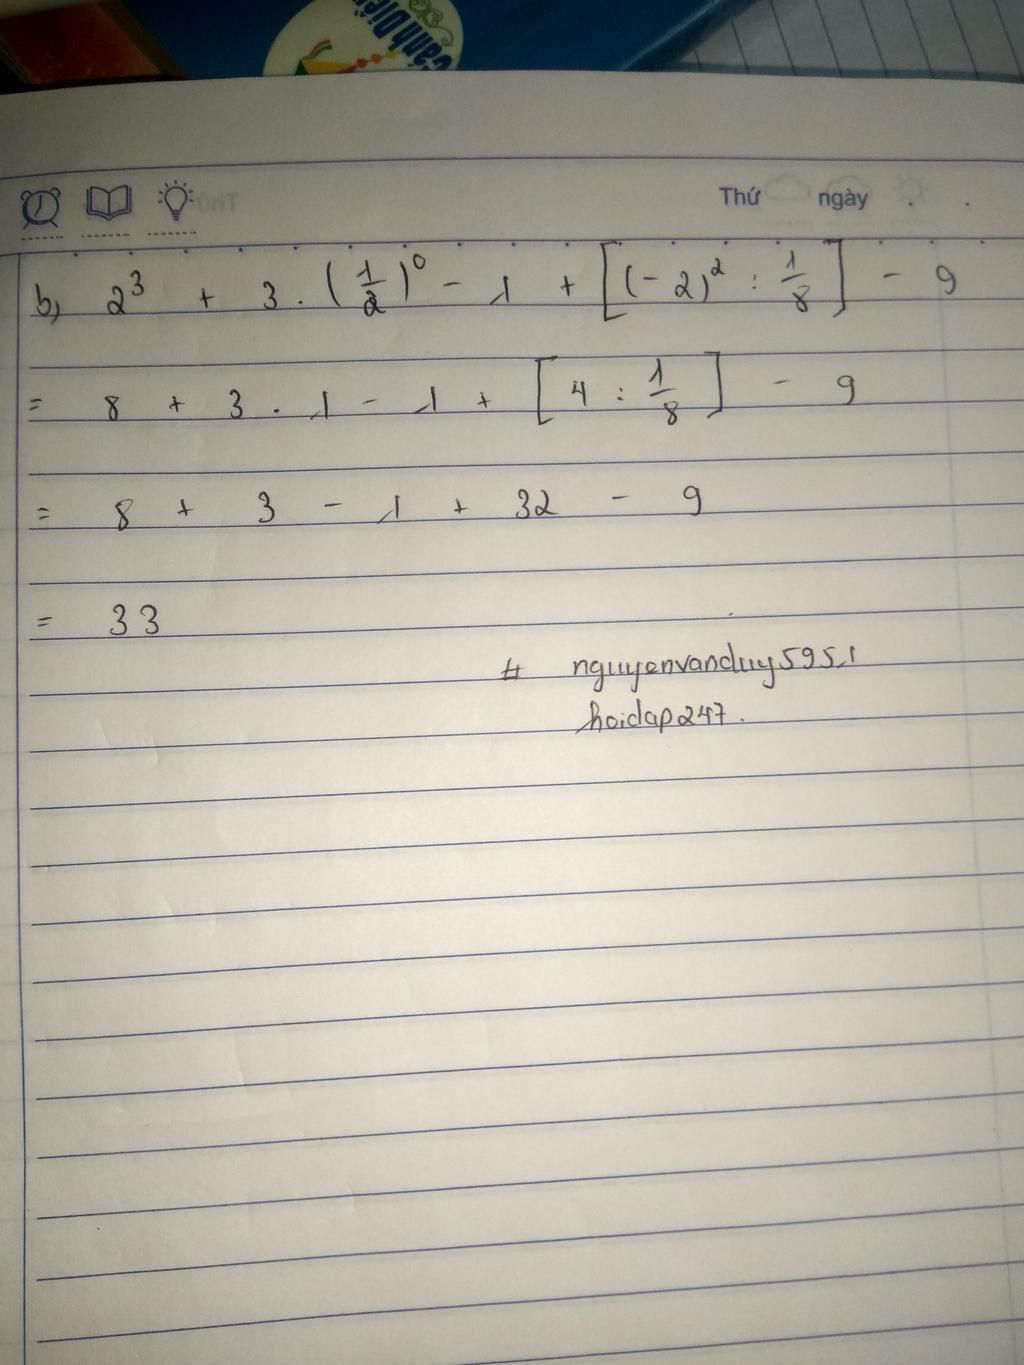 Cánh Diều
Thứ ngày
b, 2³ + 3 . (1/2)⁰ - 1 + [(-2)² : 1/8] - 9
= 8 + 3 . 1 - 1 + [4 : 1/8] - 9
= 8 + 3 - 1 + 32 - 9
= 33
# nguyenvanduy5951
hoidap247.